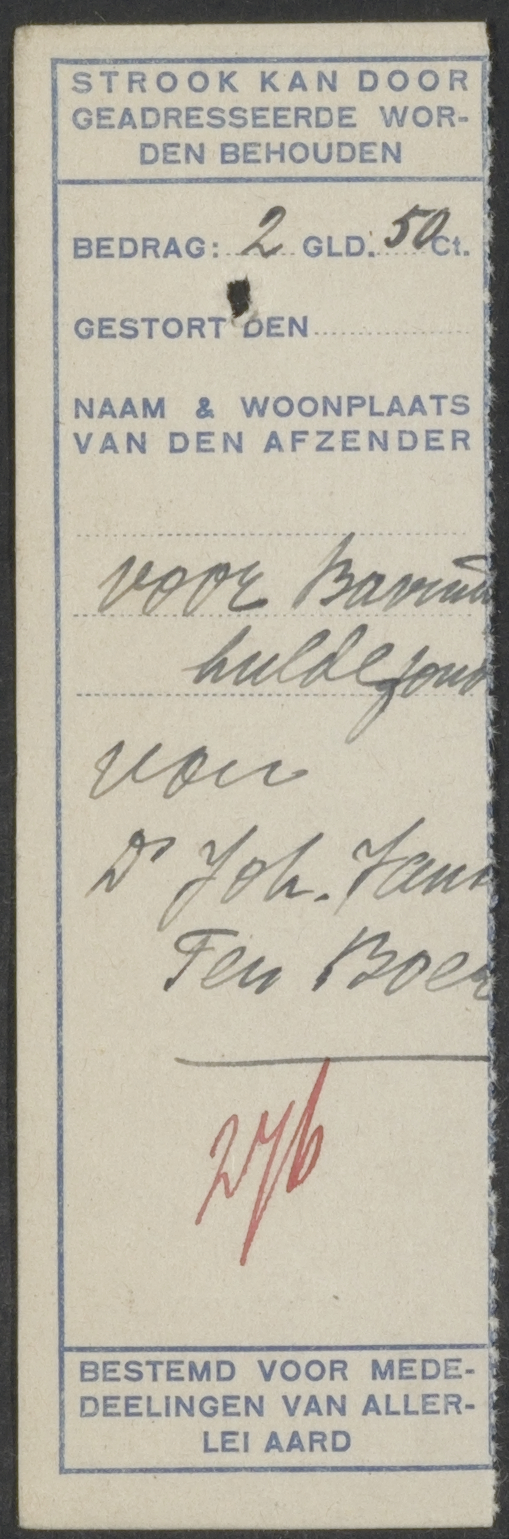 STROOK KAN DOOR
GEADRESSEERDE WOR-
DEN BEHOUDEN
BEDRAG: 2 GLD. 50 Ct.
GESTORT DEN
NAAM & WOONPLAATS
VAN DEN AFZENDER
voor
huldefond
van
Dr Joh. Jans
Ten Boer
276
BESTEMD VOOR MEDE-
DEELINGEN VAN ALLER-
LEI AARD